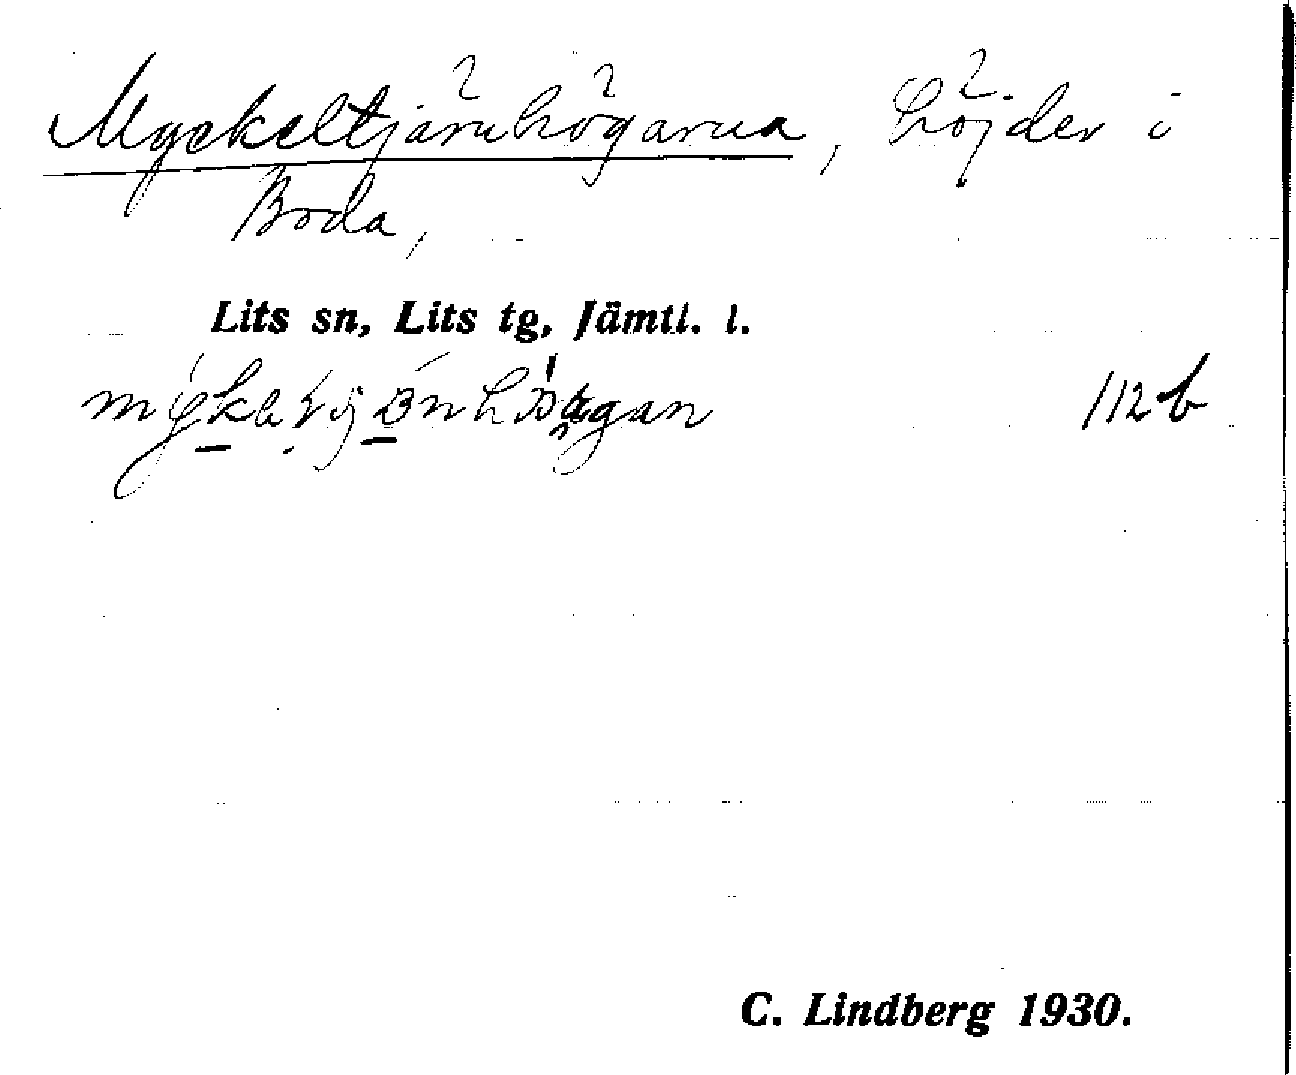 Myckeltjärnhögarna, höjder i
Boda,
Lits sn, Lits tg, Jämtl. l.
112 b
C. Lindberg 1930.